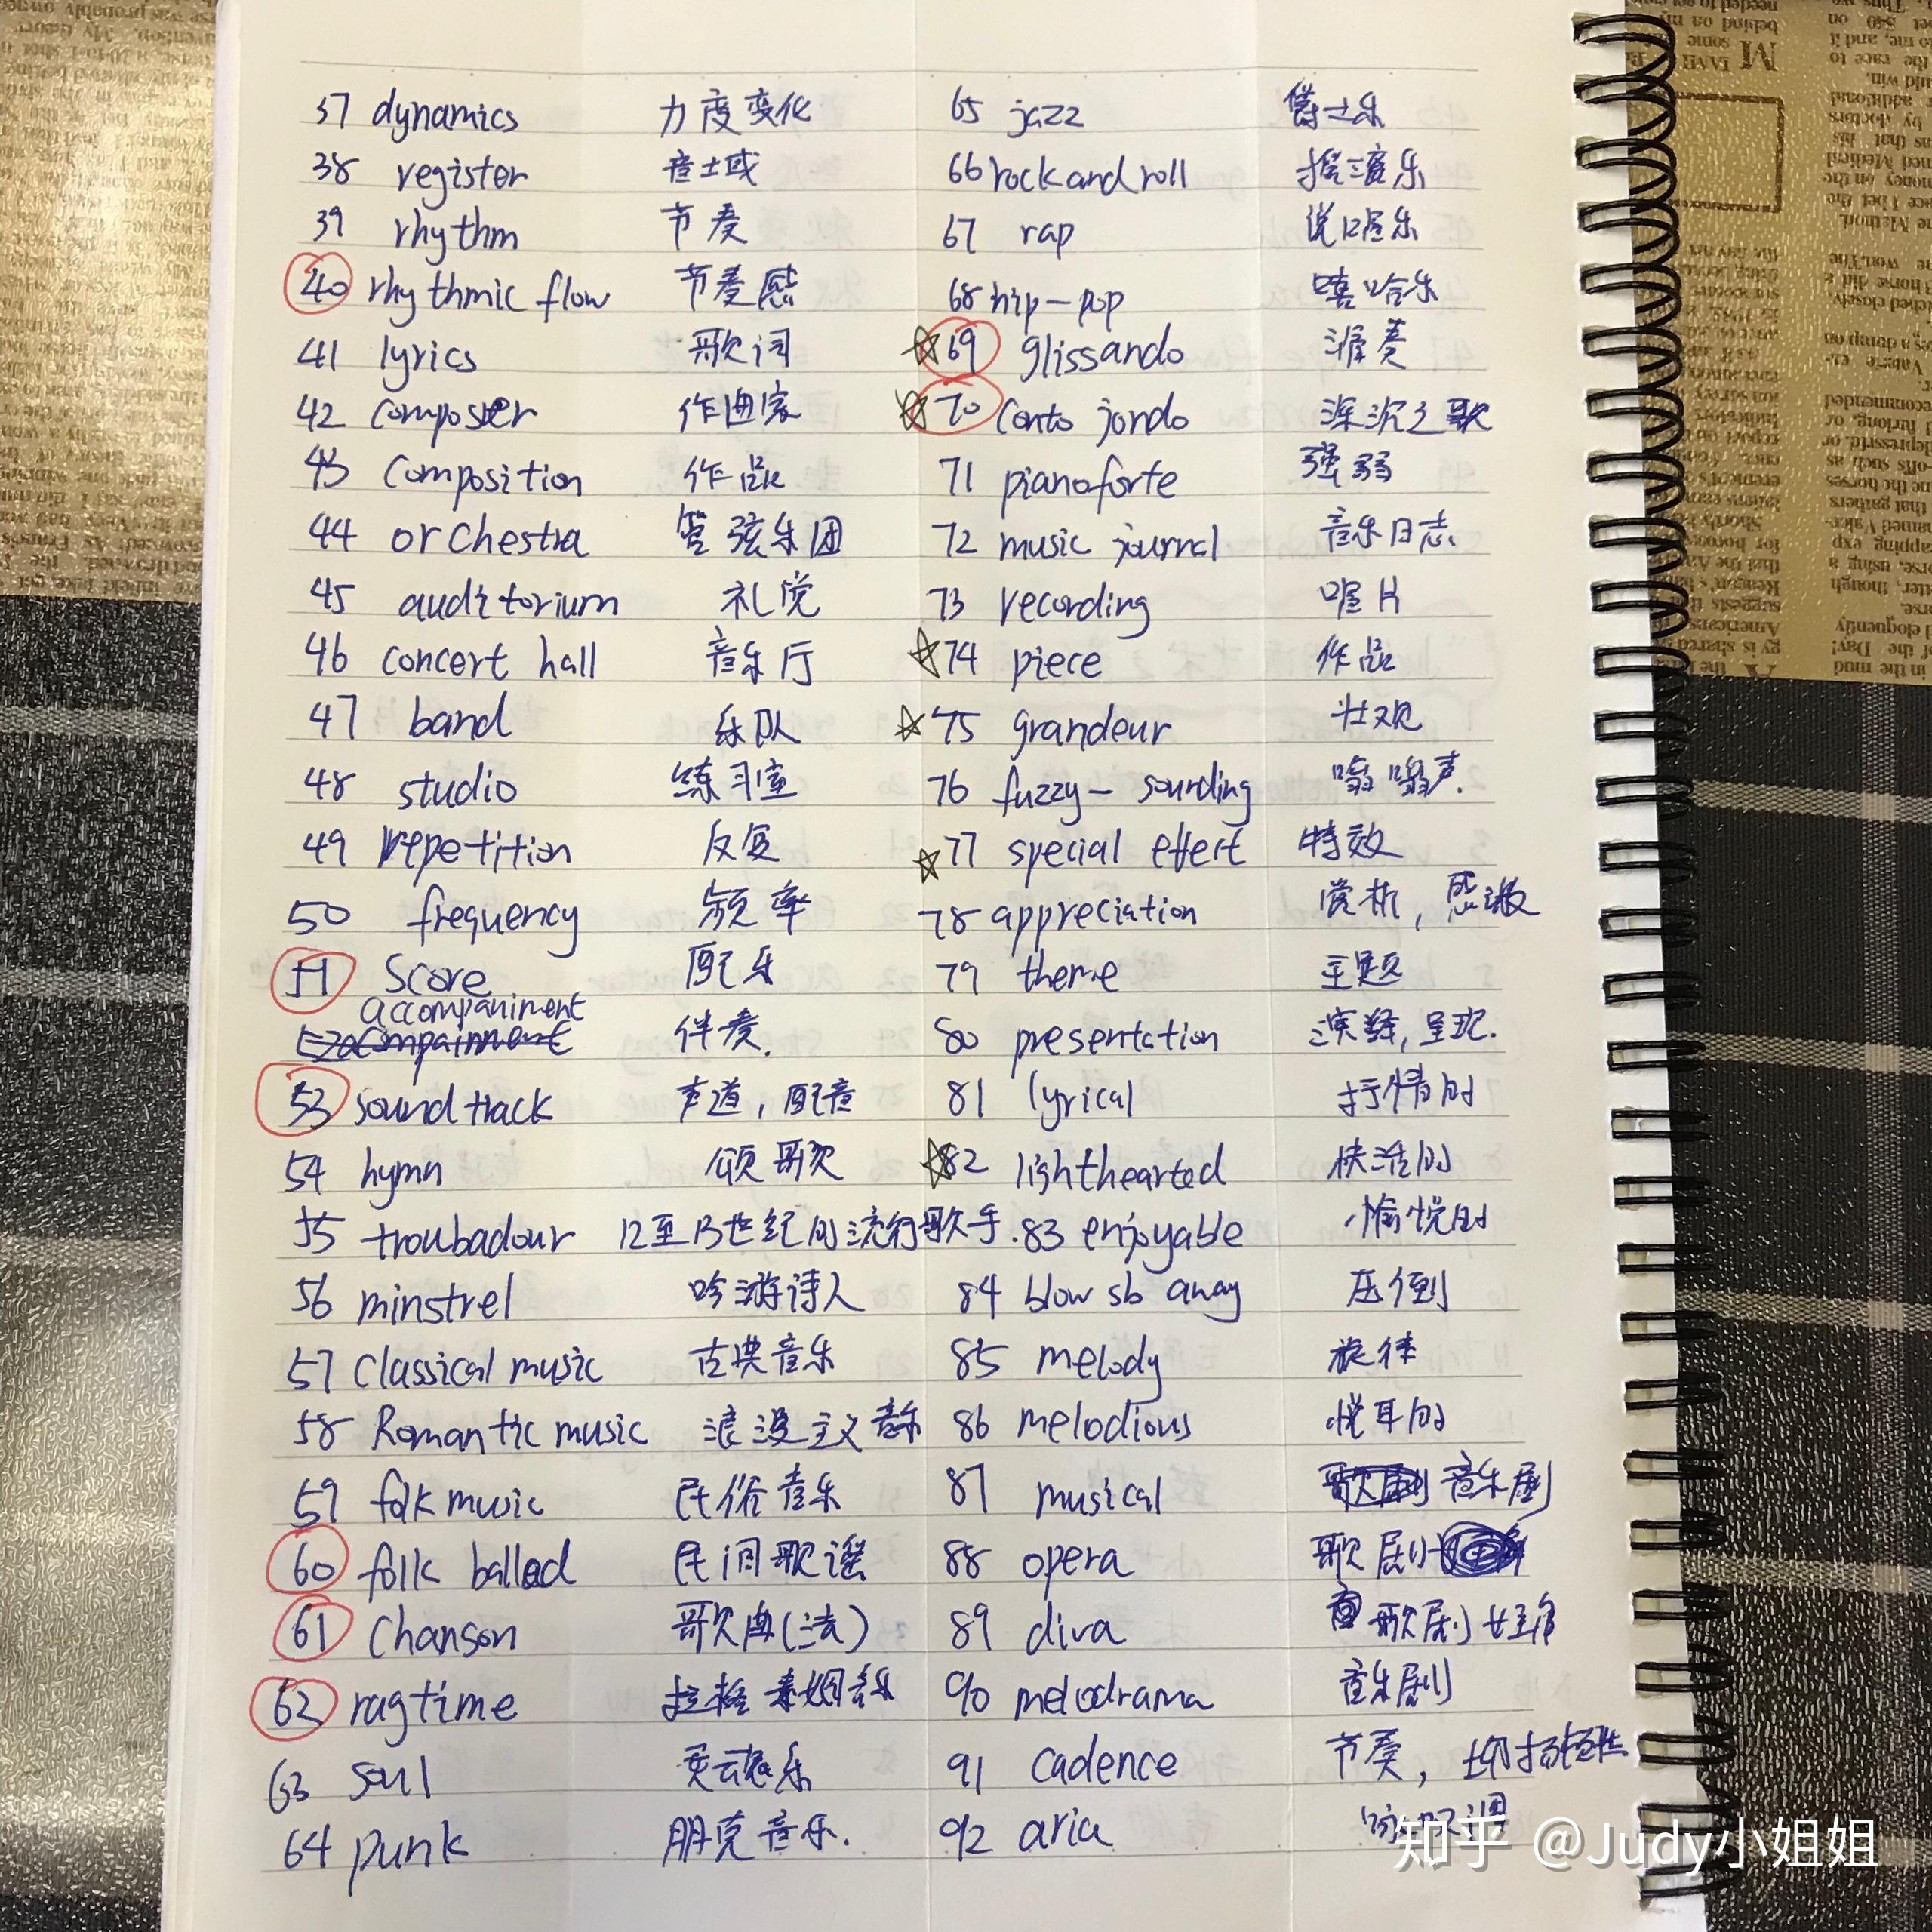 37 dynamics 力度变化
38 register 音域
39 rhythm 节奏
40 rhythmic flow 节奏感
41 lyrics 歌词
42 composer 作曲家
43 composition 作品
44 orchestra 管弦乐团
45 auditorium 礼堂
46 concert hall 音乐厅
47 band 乐队
48 studio 练习室
49 repetition 反复
50 frequency 频率
51 Score 配乐
accompaniment
52 伴奏.
53 sound track 声道, 配音
54 hymn 颂歌
55 troubadour 12至13世纪的流行歌手.
56 minstrel 吟游诗人
57 Classical music 古典音乐
58 Romantic music 浪漫主义音乐
59 folk music 民俗音乐
60 folk ballad 民间歌谣
61 Chanson 歌曲(法)
62 ragtime 拉格泰姆音乐
63 soul 灵魂乐
64 punk 朋克音乐.
65 jazz 爵士乐
66 rock and roll 摇滚乐
67 rap 说唱乐
68 hip-pop 嘻哈乐
69 glissando 滑奏
70 Conto jondo 深沉之歌
71 pianoforte 强弱
72 music journal 音乐日志
73 recording 唱片
74 piece 作品
75 grandeur 壮观
76 fuzzy-sounding 嗡嗡声.
77 special effect 特效
78 appreciation 赏析, 感激
79 theme 主题
80 presentation 演绎, 呈现.
81 lyrical 抒情的
82 lighthearted 快活的
83 enjoyable 愉悦的
84 blow sb away 压倒
85 melody 旋律
86 melodious 悦耳的
87 musical 音乐剧
88 opera 歌剧
89 diva 歌剧女主角
90 melodrama 音乐剧
91 cadence 节奏,
92 aria 咏叹调
知乎 @Judy小姐姐